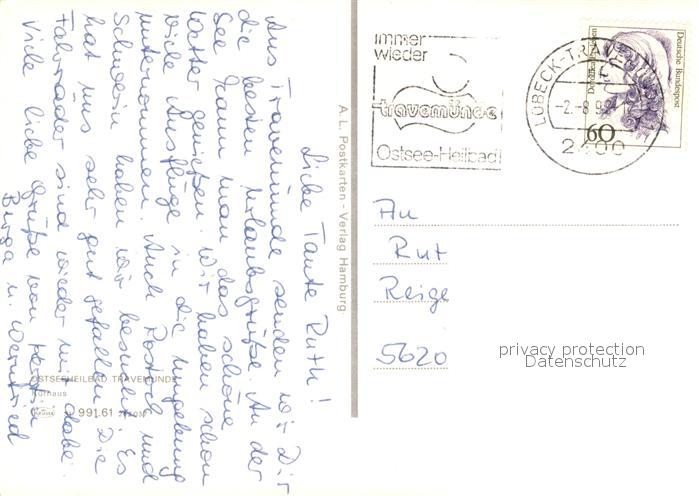 Liebe Tante Ruth!
Aus Travemünde senden wir Dir
die besten Urlaubsgrüße. An der
See kann man das schöne
Wetter genießen. Wir haben schon
viele Ausflüge in die Umgebung
unternommen. Auch Rostock und
Schwerin haben wir besucht. Es
hat uns sehr gut gefallen. Die
Fahrräder sind wieder mit dabei.
Viele liebe Grüße von
Burga u. Wernfried
OSTSEEHEILBAD TRAVEMÜNDE
Kurhaus
991.61
A. L. Postkarten - Verlag Hamburg
immer
wieder
travemünde
Ostsee-Heilbad
LÜBECK-TRAVEMÜNDE
-2.-8.92
2400
Deutsche Bundespost
60
An
Rut
Reige
5620
privacy protection
Datenschutz